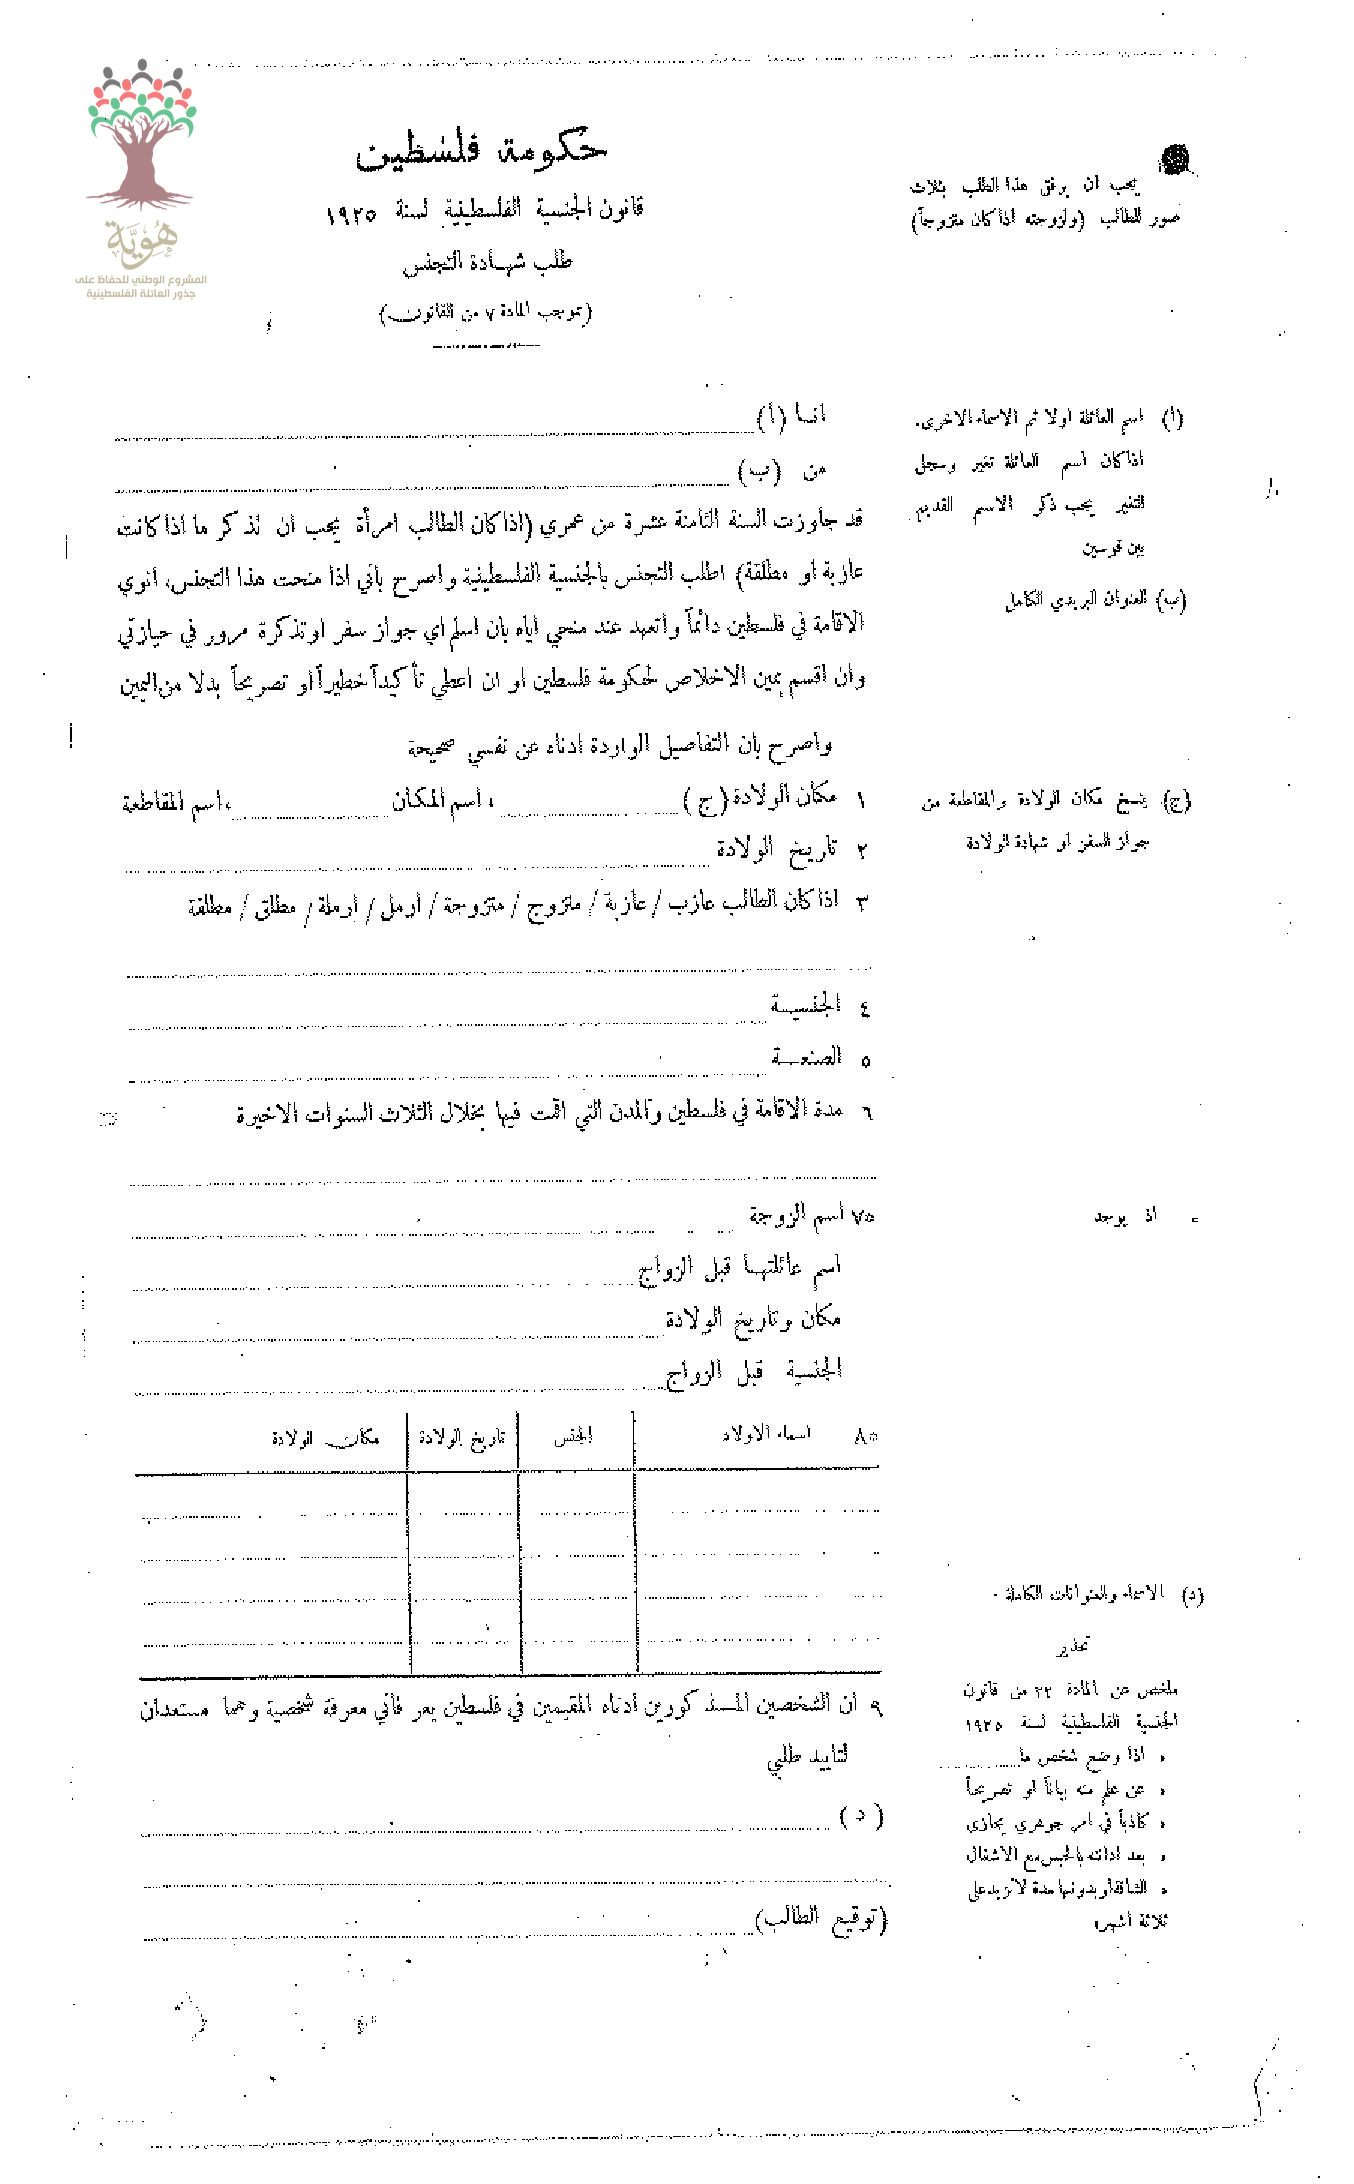 هُويَّة
المشروع الوطني للحفاظ على
جذور العائلة الفلسطينية
حكومة فلسطين
قانون الجنسية الفلسطينية لسنة ١٩٢٥
طلب شهادة التجنس
(بموجب المادة ٧ من القانون)
يجب ان يرفق هذا الطلب بثلاث
صور للطالب (ولزوجته اذا كان متزوجاً)
انا (أ)
من (ب)
قد جاوزت السنة الثامنة عشرة من عمري (اذا كان الطالب امرأة يجب ان تذكر ما اذا كانت
عازبة او مطلقة) اطلب التجنس بالجنسية الفلسطينية واصرح باني اذا منحت هذا التجنس، انوي
الاقامة في فلسطين دائماً واتعهد عند منحي اياه بان اسلم اي جواز سفر او تذكرة مرور في حيازتي
وان اقسم يمين الاخلاص لحكومة فلسطين او ان اعطي تأكيداً خطيراً او تصريحاً بدلا من اليمين
واصرح بان التفاصيل الواردة ادناه عن نفسي صحيحة
(أ) اسم العائلة اولا ثم الاسماء الاخرى.
اذا كان اسم العائلة تغير وسجل
التغير يجب ذكر الاسم القديم
بين قوسين
(ب) العنوان البريدي الكامل
١ مكان الولادة (ج) ، اسم المكان ، اسم المقاطعة
(ج) ينسخ مكان الولادة والمقاطعة من
جواز السفر او شهادة الولادة
٢ تاريخ الولادة
٣ اذا كان الطالب عازب / عازبة / متزوج / متزوجة / ارمل / ارملة / مطلق / مطلقة
٤ الجنسية
٥ الصنعة
٦ مدة الاقامة في فلسطين والمدن التي اقمت فيها بخلال الثلاث السنوات الاخيرة
٧* اسم الزوجة
* اذ يوجد
اسم عائلتها قبل الزواج
مكان وتاريخ الولادة
الجنسية قبل الزواج
٨* اسماء الاولاد الجنس تاريخ الولادة مكان الولادة
٩ ان الشخصين المذكورين ادناه المقيمين في فلسطين يعرفاني معرفة شخصية وهما مستعدان
لتاييد طلبي
(د)
(توقيع الطالب)
(د) الاسماء والعنوانات الكاملة
تحذير
ملخص عن المادة ٢٢ من قانون
الجنسية الفلسطينية لسنة ١٩٢٥
« اذا وضع شخص ما
« عن علم منه بياناً او تصريحاً
« كاذباً في امر جوهري يجازى
« بعد ادانته بالحبس مع الاشغال
« الشاقة او بدونها مدة لا تزيد على
ثلاثة اشهر»